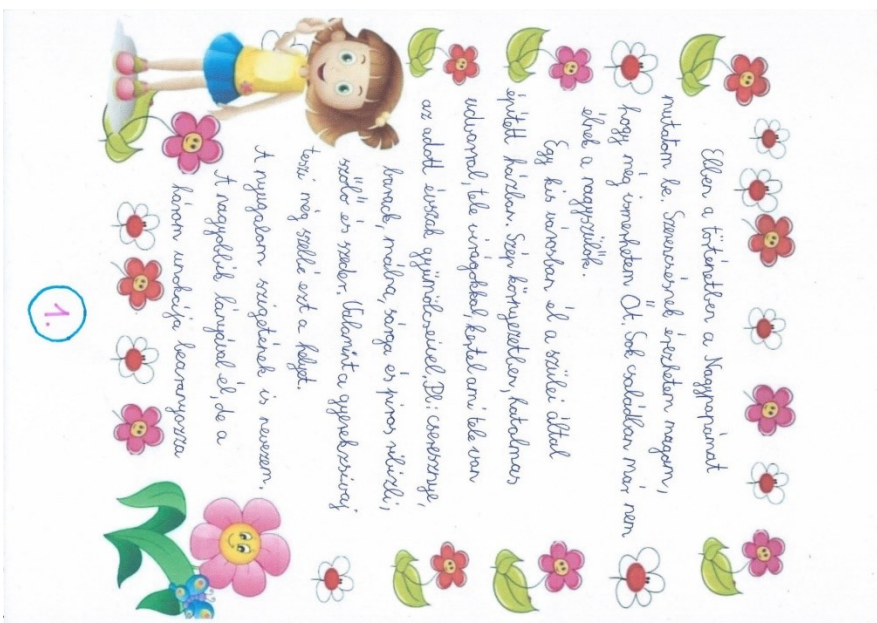 Ebben a történetben a Nagypapámat
mutatom be. Szerencsésnek érezhetem magam,
hogy még ismerhetem Őt. Sok családban már nem
élnek a nagyszülők.
Egy kis városban él a szülei által
épített házban. Szép környezetben, hatalmas
udvarral, tele virágokkal, kertel ami tele van
az adott évszak gyümölcseivel, Pl.: cseresznye,
barack, málna, sárga és piros ribizli,
szőlő és szeder. Valamint a gyerekzsivaj
teszi még széllé ezt a helyet.
A nyugalom szigetének is nevezem.
A nagyobbik lányával él, de a
három unokája bearanyozza
1.